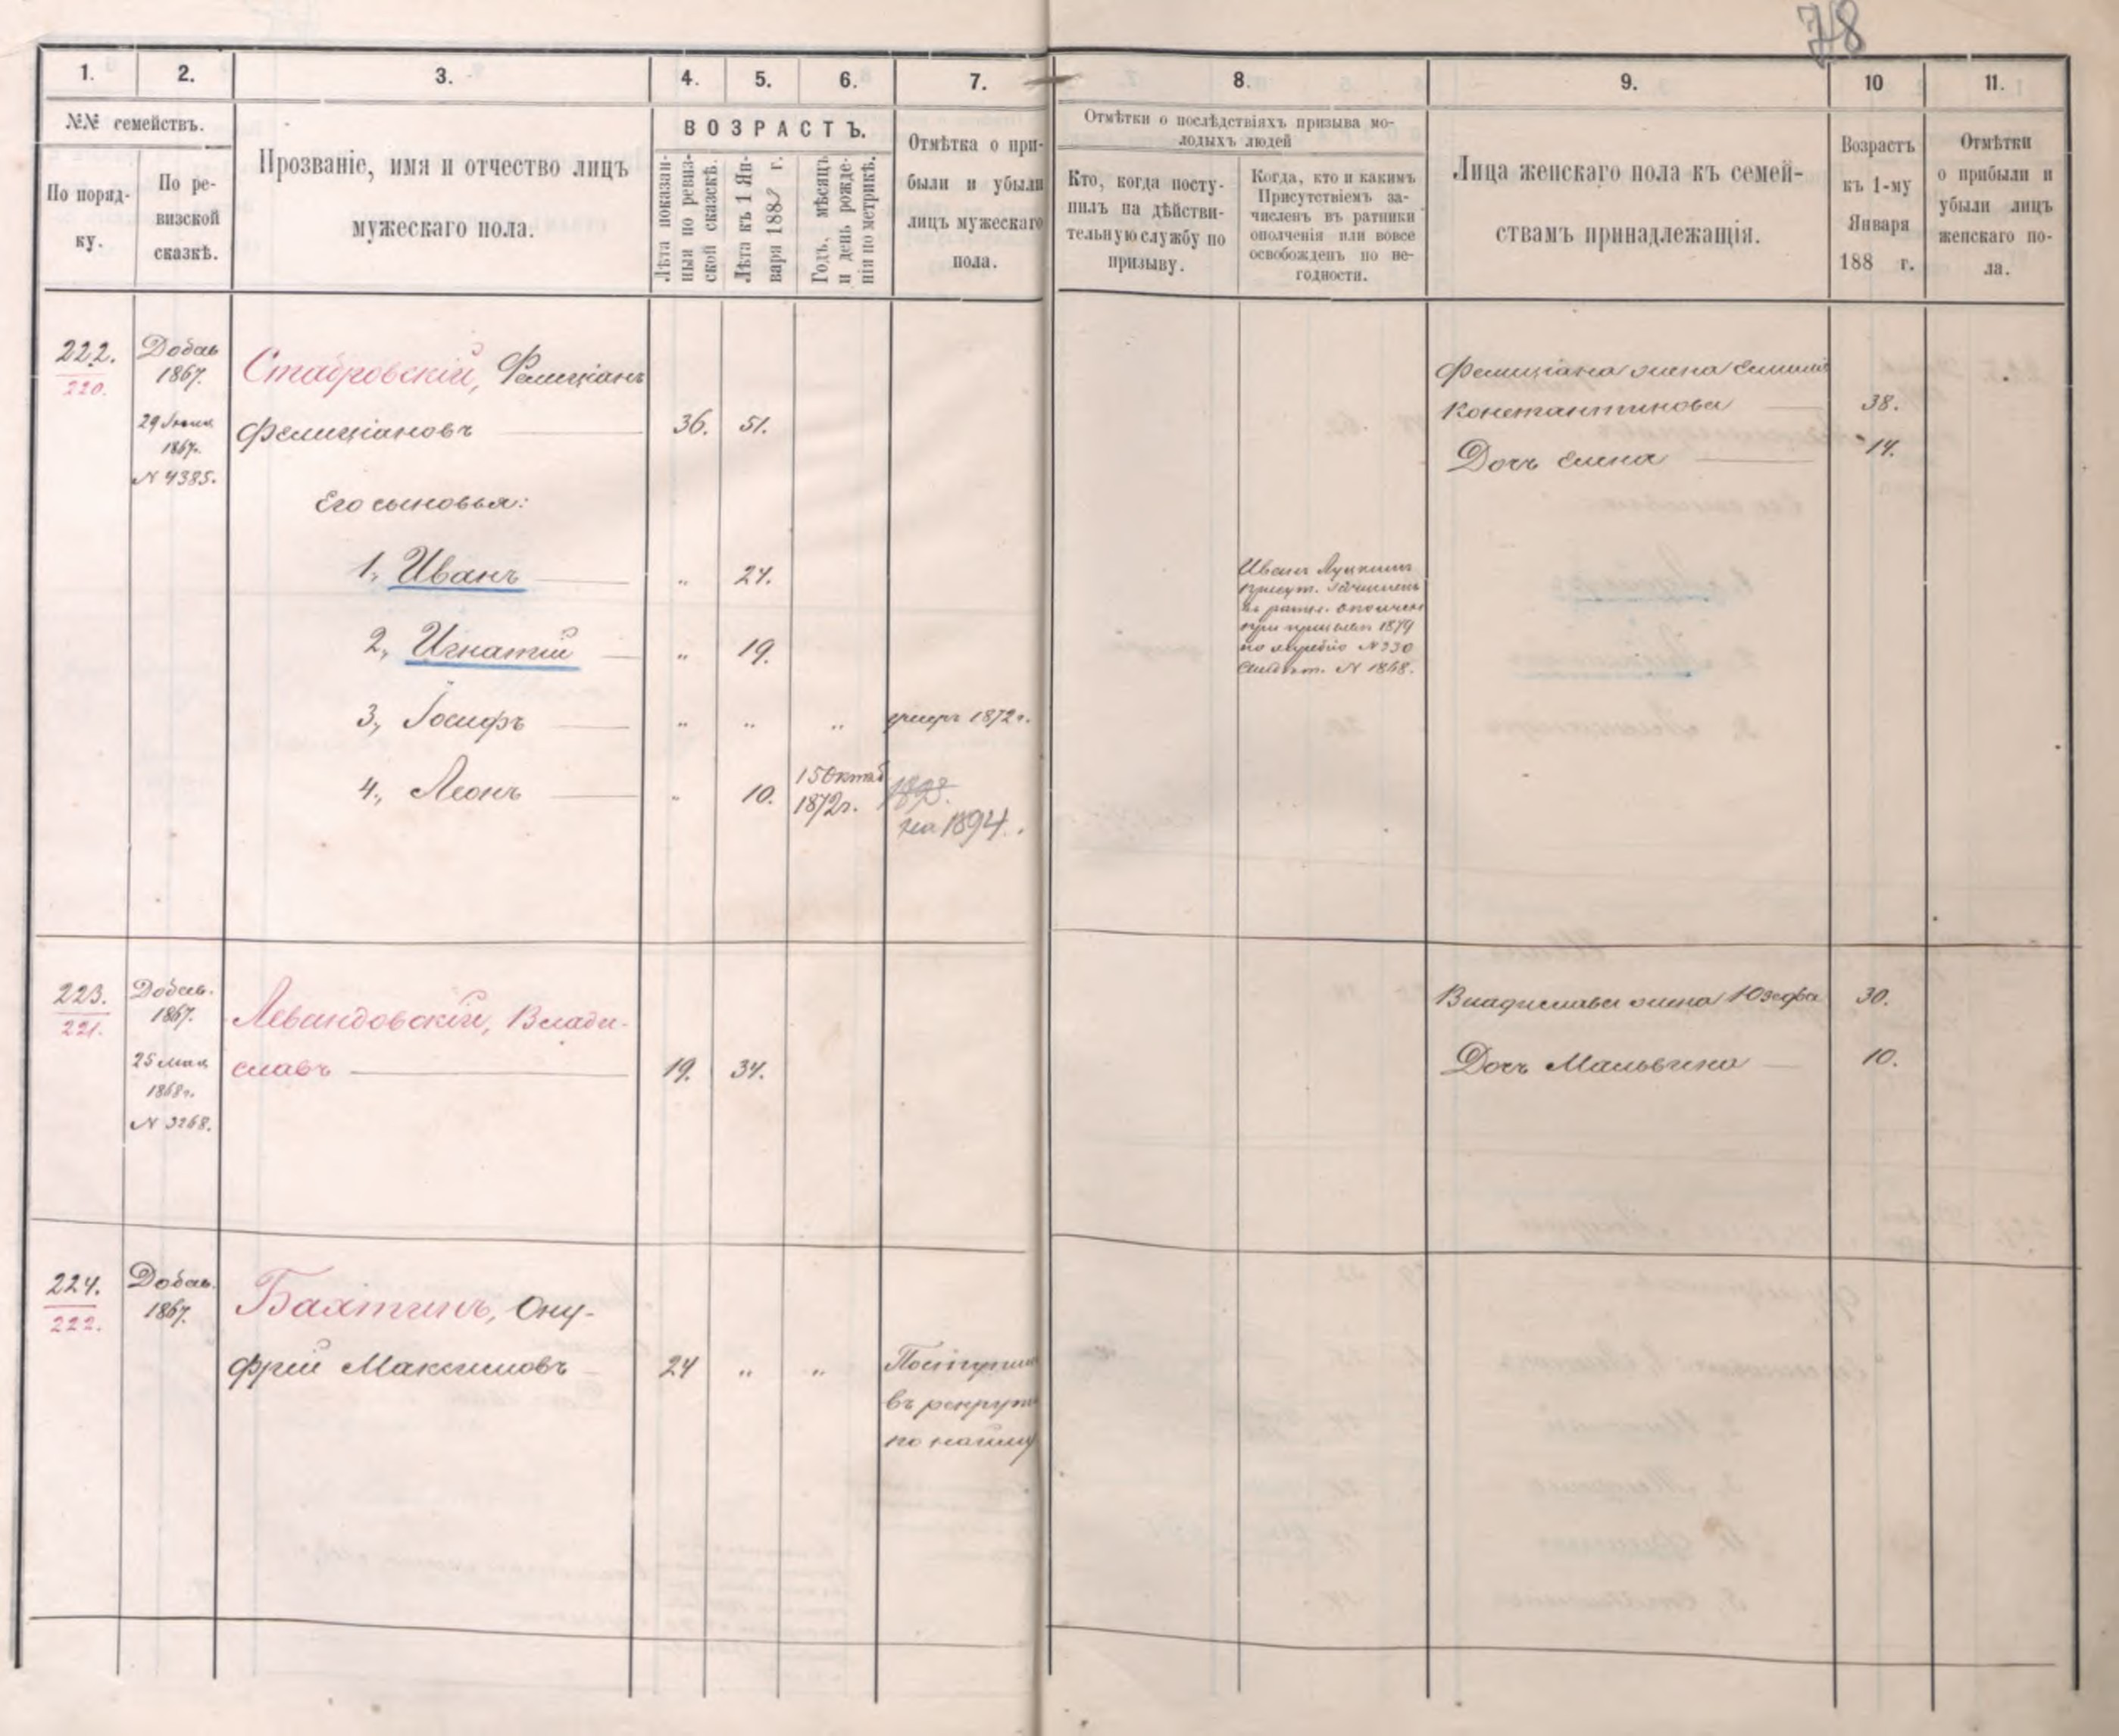 78
1.
2.
3.
4.
5.
6.
7.
8.
9.
10
11.
№№ семействъ.
По поряд-
ку.
По ре-
визской
сказкѣ.
Прозваніе, имя и отчество лицъ
мужескаго пола.
ВОЗРАСТЪ.
Лѣта показан-
ныя по ревиз-
ской сказкѣ.
Лѣта къ 1 Ян-
варя 1883 г.
Годъ, мѣсяцъ
и день рожде-
нія по метрикѣ.
Отмѣтка о при-
были и убыли
лицъ мужескаго
пола.
Отмѣтки о послѣдствіяхъ призыва мо-
лодыхъ людей
Кто, когда посту-
пилъ на дѣйстви-
тельную службу по
призыву.
Когда, кто и какимъ
Присутствіемъ за-
численъ въ ратники
ополченія или вовсе
освобожденъ по не-
годности.
Лица женскаго пола къ семей-
ствамъ принадлежащія.
Возрастъ
къ 1-му
Января
188 г.
Отмѣтки
о прибыли и
убыли лицъ
женскаго по-
ла.
222.
220.
Добав
1867.
29 Іюня
1867г.
№ 4385.
Ставровскій, Фелиціанъ
Фелиціановъ
36.
51.
Его сыновья:
1., Иванъ
"
24.
2., Игнатій
"
19.
3., Іосифъ
"
"
"
умеръ 1872 г.
4., Леонъ
"
10.
15 Октяб
1872г.
1893.
на 1894.
Иванъ Луцкимъ
присут. зачисленъ
въ ратн. ополчен
при призывѣ 1879
по жребію № 330
Свидѣт. № 1868.
Фелиціана жена Емилія
Константинова
38.
Дочь Елена
14.
223.
221.
Добав.
1867.
25 Мая
1868г.
№ 3268.
Левандовскій, Влади-
славъ
19.
34.
Владислава жена Юзефа
30.
Дочь Мальвина
10.
224.
222.
Добав.
1867.
Бахтинъ, Ону-
фрій Максимовъ
24
"
"
Поступил
въ рекрут
по найму